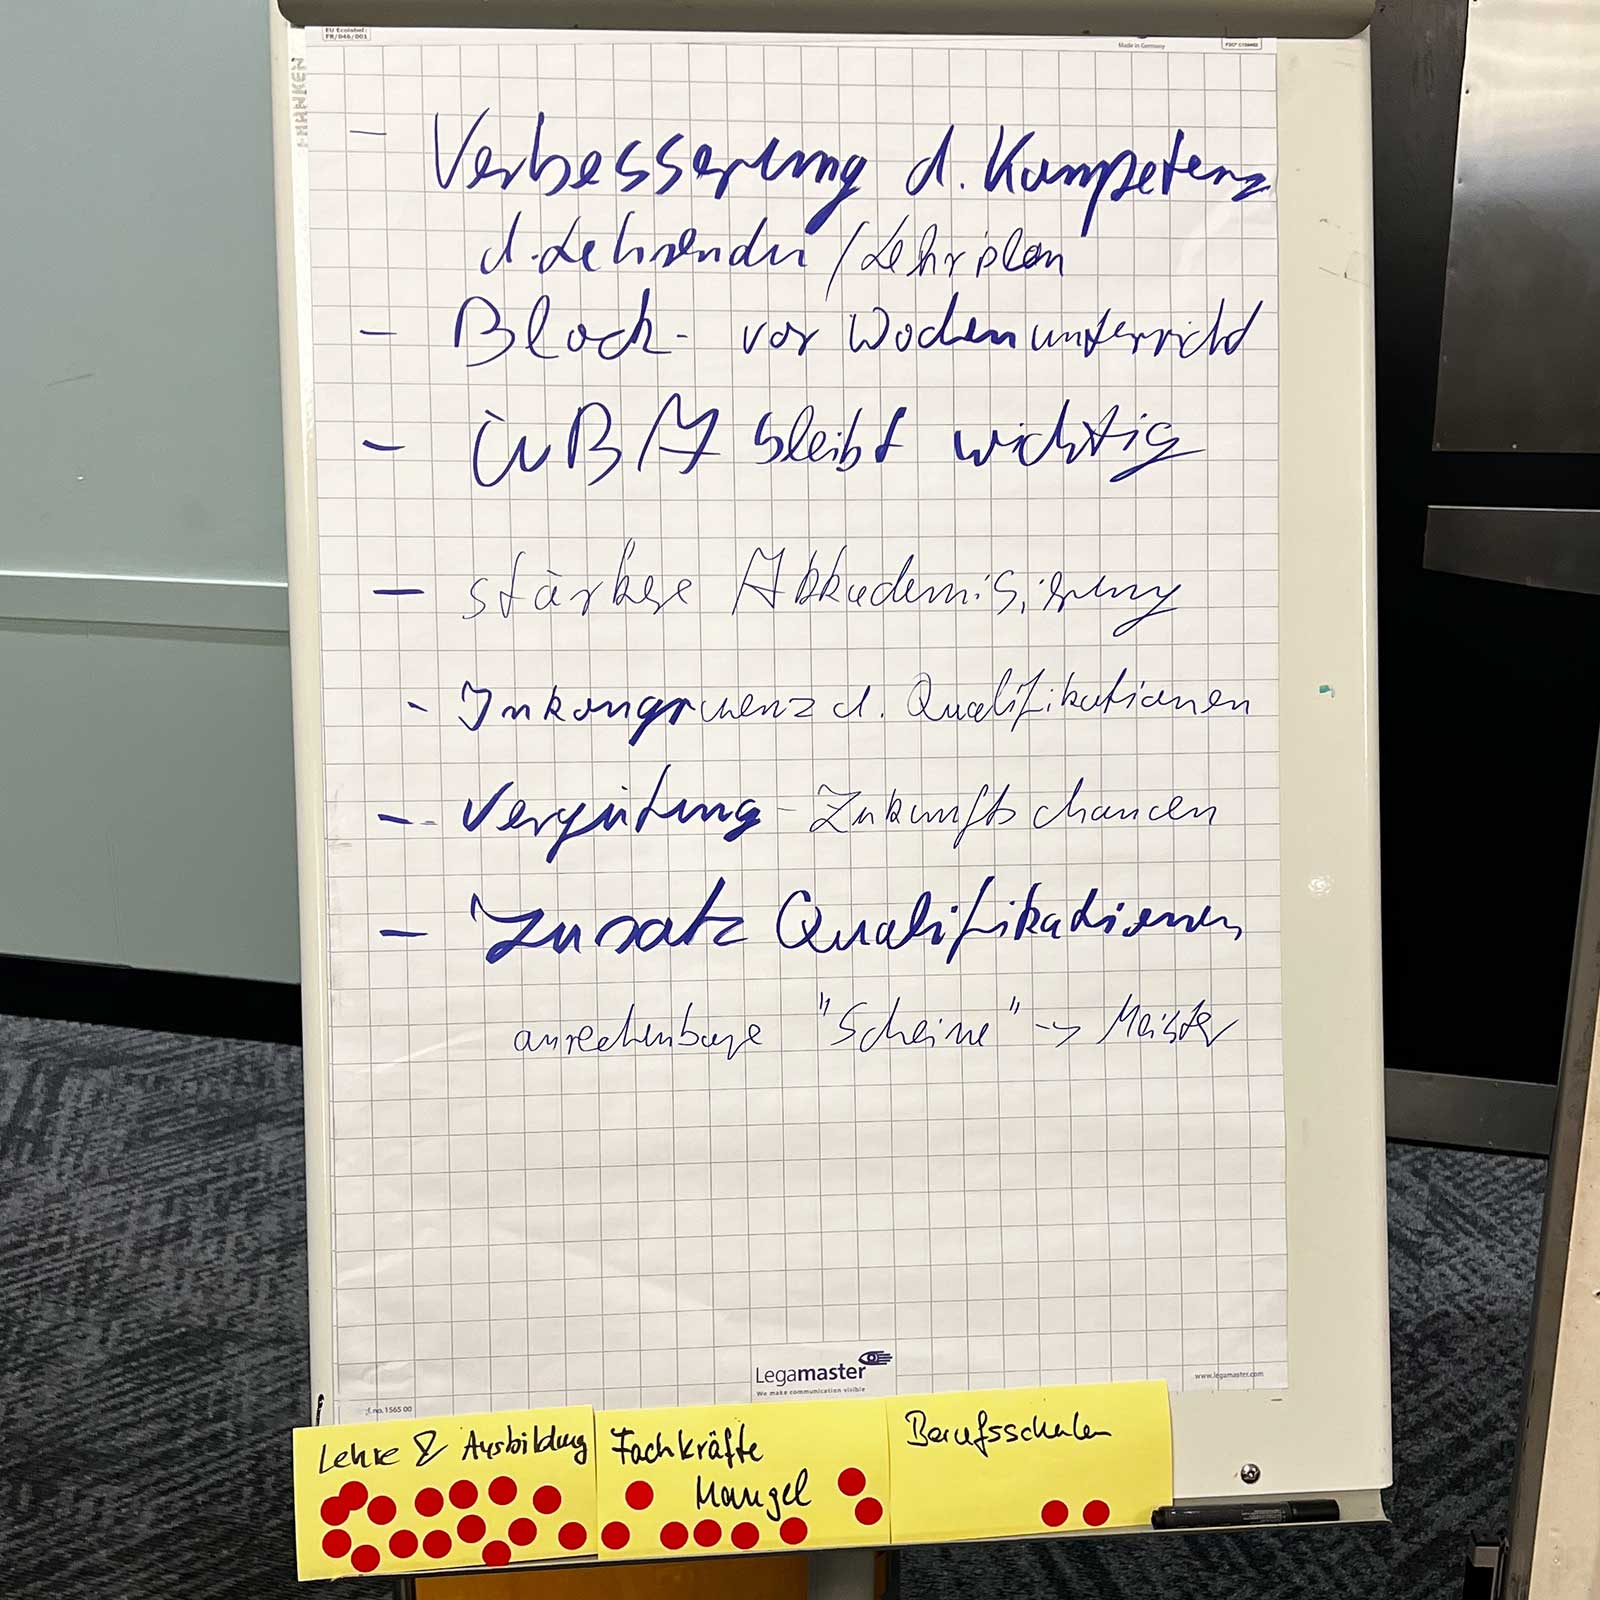 EU Ecolabel:
FR/046/001
Made in Germany
- Verbesserung d. Kompetenz
d. Lehrenden / Lehrplan
- Block- vor Wochenunterricht
- ÜBA bleibt wichtig
- stärkere Akkademisierung
- Inkongruenz d. Qualifikationen
- Vergütung - Zukunftschancen
- Zusatz Qualifikationen
anrechenbare "Scheine" -> Meister
Legamaster
We make communication visible
www.legamaster.com
no. 1565 00
Lehre & Ausbildung
Fachkräfte
Mangel
Berufsschulen